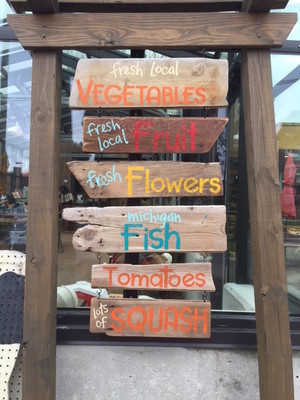 fresh Local
VEGETABLES
fresh
local
Fruit
fresh Flowers
michigan
Fish
Tomatoes
lots
of
SQUASH